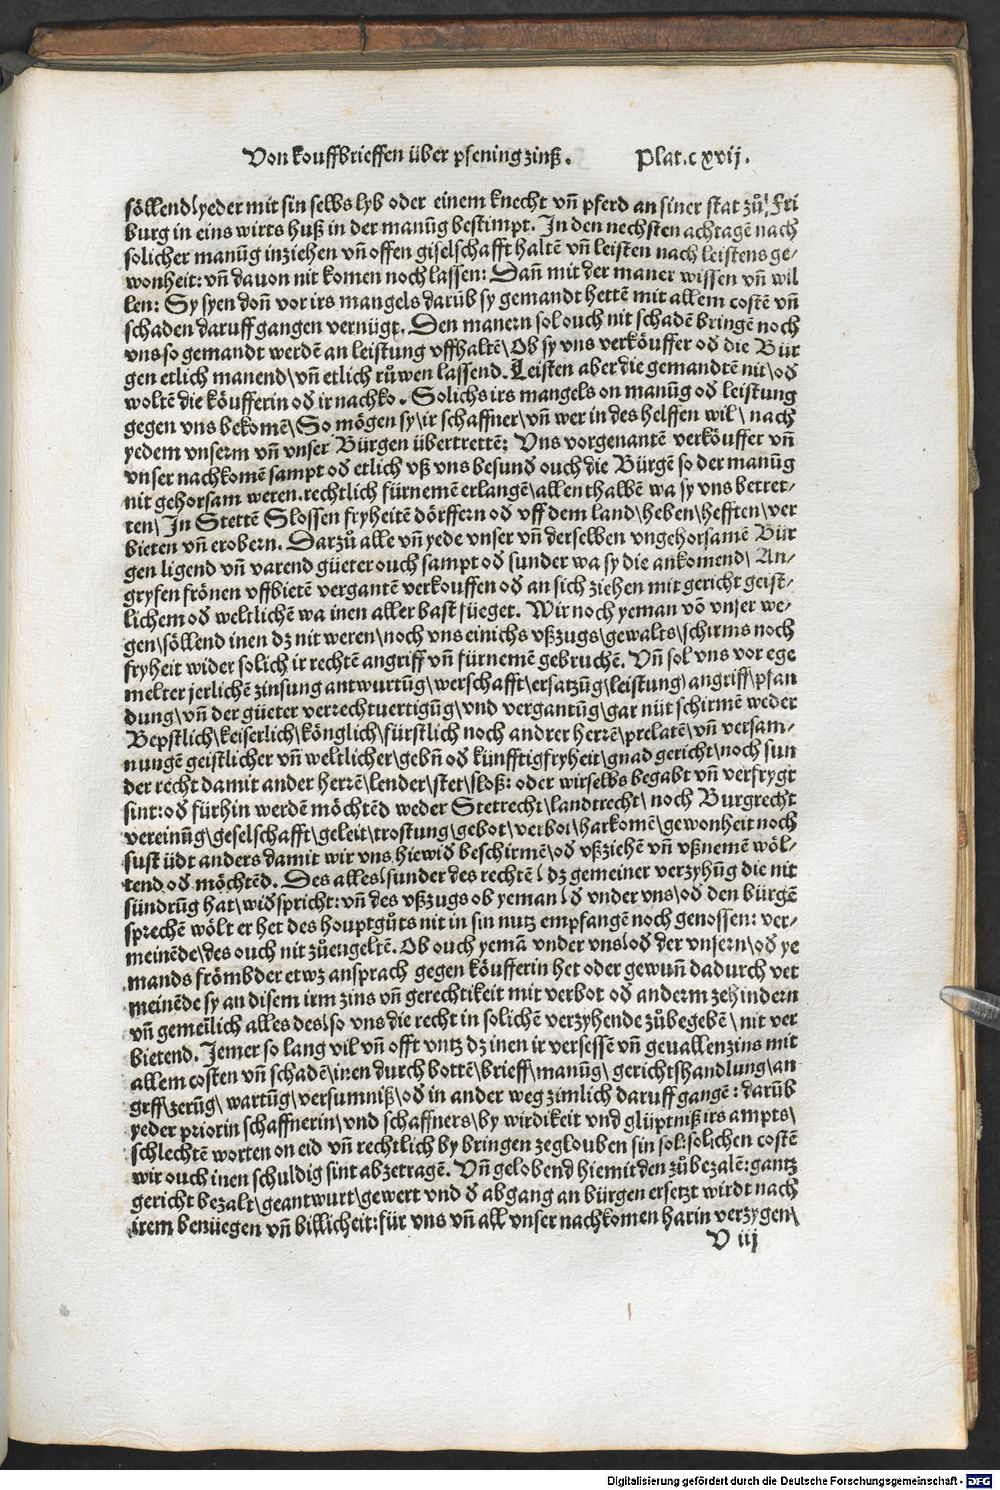 Von kouffbrieffen über pfening zinß. Plat. c xvij.
söllend\yeder mit sin selbs lyb oder einem knecht vñ pferd an siner stat zů\ Fri
burg in eins wirts huß in der manũg bestimpt. In den nechsten achtagẽ nach
solicher manũg inziehen vñ offen giselschafft haltẽ vñ leisten nach leistens ge⸗
wonheit: vñ dauon nit komen noch lassen: Dañ mit der maner wissen vñ wil
len: Sy syen doñ vor irs mangels darüb sy gemandt hettẽ mit allem costẽ vñ
schaden daruff gangen vernügt. Den manern sol ouch nit schadẽ bringẽ noch
vns so gemandt werdẽ an leistung vffhaltẽ\ Ob sy vns verköuffer oð die Bür
gen etlich manend\vñ etlich růwen lassend. Leisten aber die gemandtẽ nit\oð
woltẽ die köufferin oð ir nachko. Solichs irs mangels on manũg oð leistung
gegen vns bekomẽ\So mögen sy\ir schaffner\vñ wer in des helffen wil\ nach
yedem vnserm vñ vnser Bürgen übertrettẽ: Vns vorgenantẽ verköuffer vñ
vnser nachkomẽ sampt oð etlich vß vns besunð ouch die Bürgẽ so der manũg
nit gehorsam weren.rechtlich fürnemẽ erlangẽ\allenthalbẽ wa sy vns bettret⸗
ten\ In Stettẽ Slossen fryheitẽ dörffern oð vff dem land\heben\hefften\ver
bieten vñ erobern. Darzů alle vñ yede vnser vñ derselben vngehorsamẽ Bür
gen ligend vñ varend güeter ouch sampt oð sunder wa sy die ankomend\ An⸗
gryfen frönen vffbietẽ vergantẽ verkouffen oð an sich ziehen mit gericht geist⸗
lichem oð weltlichẽ wa inen aller bast füeget. Wir noch yeman võ vnser we⸗
gen\söllend inen dz nit weren\noch vns einichs vßzugs\gewalts\schirms noch
fryheit wider solich ir rechtẽ angriff vñ fürnemẽ gebruchẽ. Vñ sol vns vor ege
melter jerlichẽ zinsung antwurtũg\werschafft\ersatzũg\leistung\angriff\pfan
dung\vñ der güeter verrechtuertigũg\vnd vergantũg\gar nüt schirmẽ weder
Bepstlich\keiserlich\könglich\fürstlich noch andrer herrẽ\prelatẽ\vñ versam⸗
nungẽ geistlicher vñ weltlicher\gebñ oð künfftig fryheit\gnad gericht\noch sun
der recht damit ander herrẽ\lender\stet\sloß: oder wir selbs begabt vñ verfrygt
sint: oð fürhin werdẽ möchtẽd weder Stetrecht\landtrecht\ noch Burgrecht
vereinũg\geselschafft\geleit\trostung\gebot\verbot\harkomẽ\gewonheit noch
sust üdt anders damit wir vns hiewið beschirmẽ\oð vßziehẽ vñ vßnemẽ wöl⸗
tend oð möchtẽd. Des alles\sunder des rechtẽ\ dz gemeiner verzyhũg die nit
sündrũg hat\wiðspricht: vñ des vßzugs ob yeman\ð vnder vns\oð den bürgẽ
sprechẽ wölt er het des houptgůts nit in sin nutz empfangẽ noch genossen: ver⸗
meinẽde\des ouch nit zů engeltẽ. Ob ouch yemã vnder vns\oð der vnsern\oð ye
mands frömbder etwz ansprach gegen köufferin het oder gewuñ dadurch ver
meinẽde sy an disem irm zins vñ gerechtikeit mit verbot oð anderm zehindern
vñ gemeilich alles des\so vns die recht in solichẽ verzyhende zůbegebẽ\ nit ver
bietend. Jemer so lang vil vñ offt vntz dz inen ir versessẽ vñ geuallen zins mit
allem costen vñ schadẽ\inen durch bottẽ\brieff\manũg\ gerichtshandlung\an
grff\zerũg\ wartũg\versumniß\oð in ander weg zimlich daruff gangẽ: darüb
yeder priorin schaffnerin\vnd schaffners\by wirdikeit vnd glüptniß irs ampts\
schlechtẽ worten on eid vñ rechtlich by bringen zeglouben sin sol: solichen costẽ
wir ouch inen schuldig sint abzetragẽ. Vñ gelobend hiemit den zů bezalẽ: gantz
gericht bezalt\geantwurt\gewert vnd ð abgang an bürgen ersetzt wirdt nach
irem benüegen vñ billicheit: für vns vñ all vnser nachkomen harin verzygen\
V iij
Digitalisierung gefördert durch die Deutsche Forschungsgemeinschaft - DFG